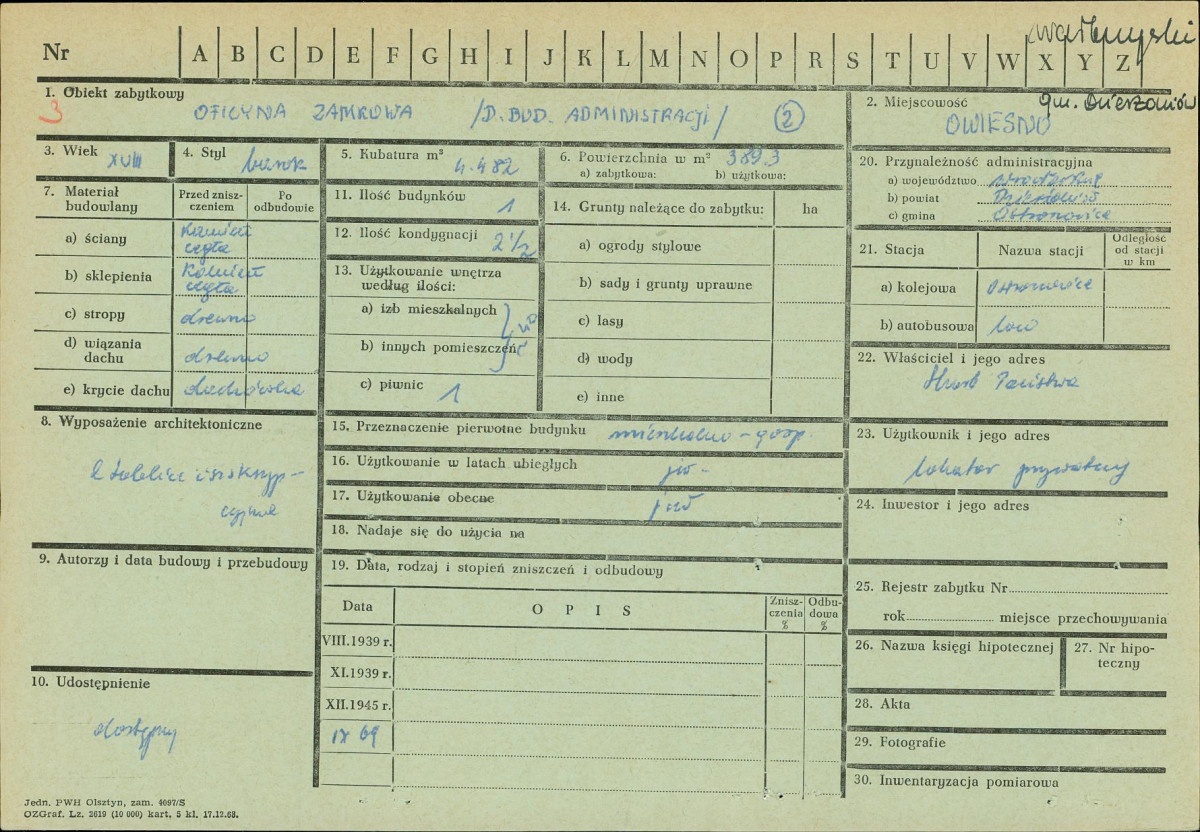 Nr A B C D E F G H I J K L M N O P R S T U V W X Y Z
wałbrzyski
1. Obiekt zabytkowy
3 OFICYNA ZAMKOWA /D. BUD. ADMINISTRACJI/ 2
2. Miejscowość gm. Dzierżoniów
OWIESNO
3. Wiek XVIII
4. Styl barok
5. Kubatura m³ 4.482
6. Powierzchnia w m² 389.3
a) zabytkowa: b) użytkowa:
7. Materiał budowlany
Przed zniszczeniem
Po odbudowie
a) ściany kamień cegła
b) sklepienia kamień cegła
c) stropy drewno
d) wiązania dachu drewno
e) krycie dachu dachówka
8. Wyposażenie architektoniczne
2 tablice inskrypcyjne
9. Autorzy i data budowy i przebudowy
10. Udostępnienie
dostępny
11. Ilość budynków 1
12. Ilość kondygnacji 2 1/2
13. Użytkowanie wnętrza według ilości:
a) izb mieszkalnych
b) innych pomieszczeń
c) piwnic 1
14. Grunty należące do zabytku: ha
a) ogrody stylowe
b) sady i grunty uprawne
c) lasy
d) wody
e) inne
15. Przeznaczenie pierwotne budynku mieszkalno-gosp.
16. Użytkowanie w latach ubiegłych jw.
17. Użytkowanie obecne jw
18. Nadaje się do użycia na
19. Data, rodzaj i stopień zniszczeń i odbudowy
Data OPIS Zniszczenia % Odbudowa %
VIII.1939 r.
XI.1939 r.
XII.1945 r.
IX 69
20. Przynależność administracyjna
a) województwo wrocławskie
b) powiat Dzierżoniów
c) gmina Ostroszowice
21. Stacja Nazwa stacji Odległość od stacji w km
a) kolejowa Ostroszowice
b) autobusowa
22. Właściciel i jego adres
Skarb Państwa
23. Użytkownik i jego adres
lokator prywatny
24. Inwestor i jego adres
25. Rejestr zabytku Nr
rok miejsce przechowywania
26. Nazwa księgi hipotecznej
27. Nr hipoteczny
28. Akta
29. Fotografie
30. Inwentaryzacja pomiarowa
Jedn. PWH Olsztyn, zam. 4097/S
OZGraf. Lz. 2619 (10 000) kart, 5 kl. 17.12.68.